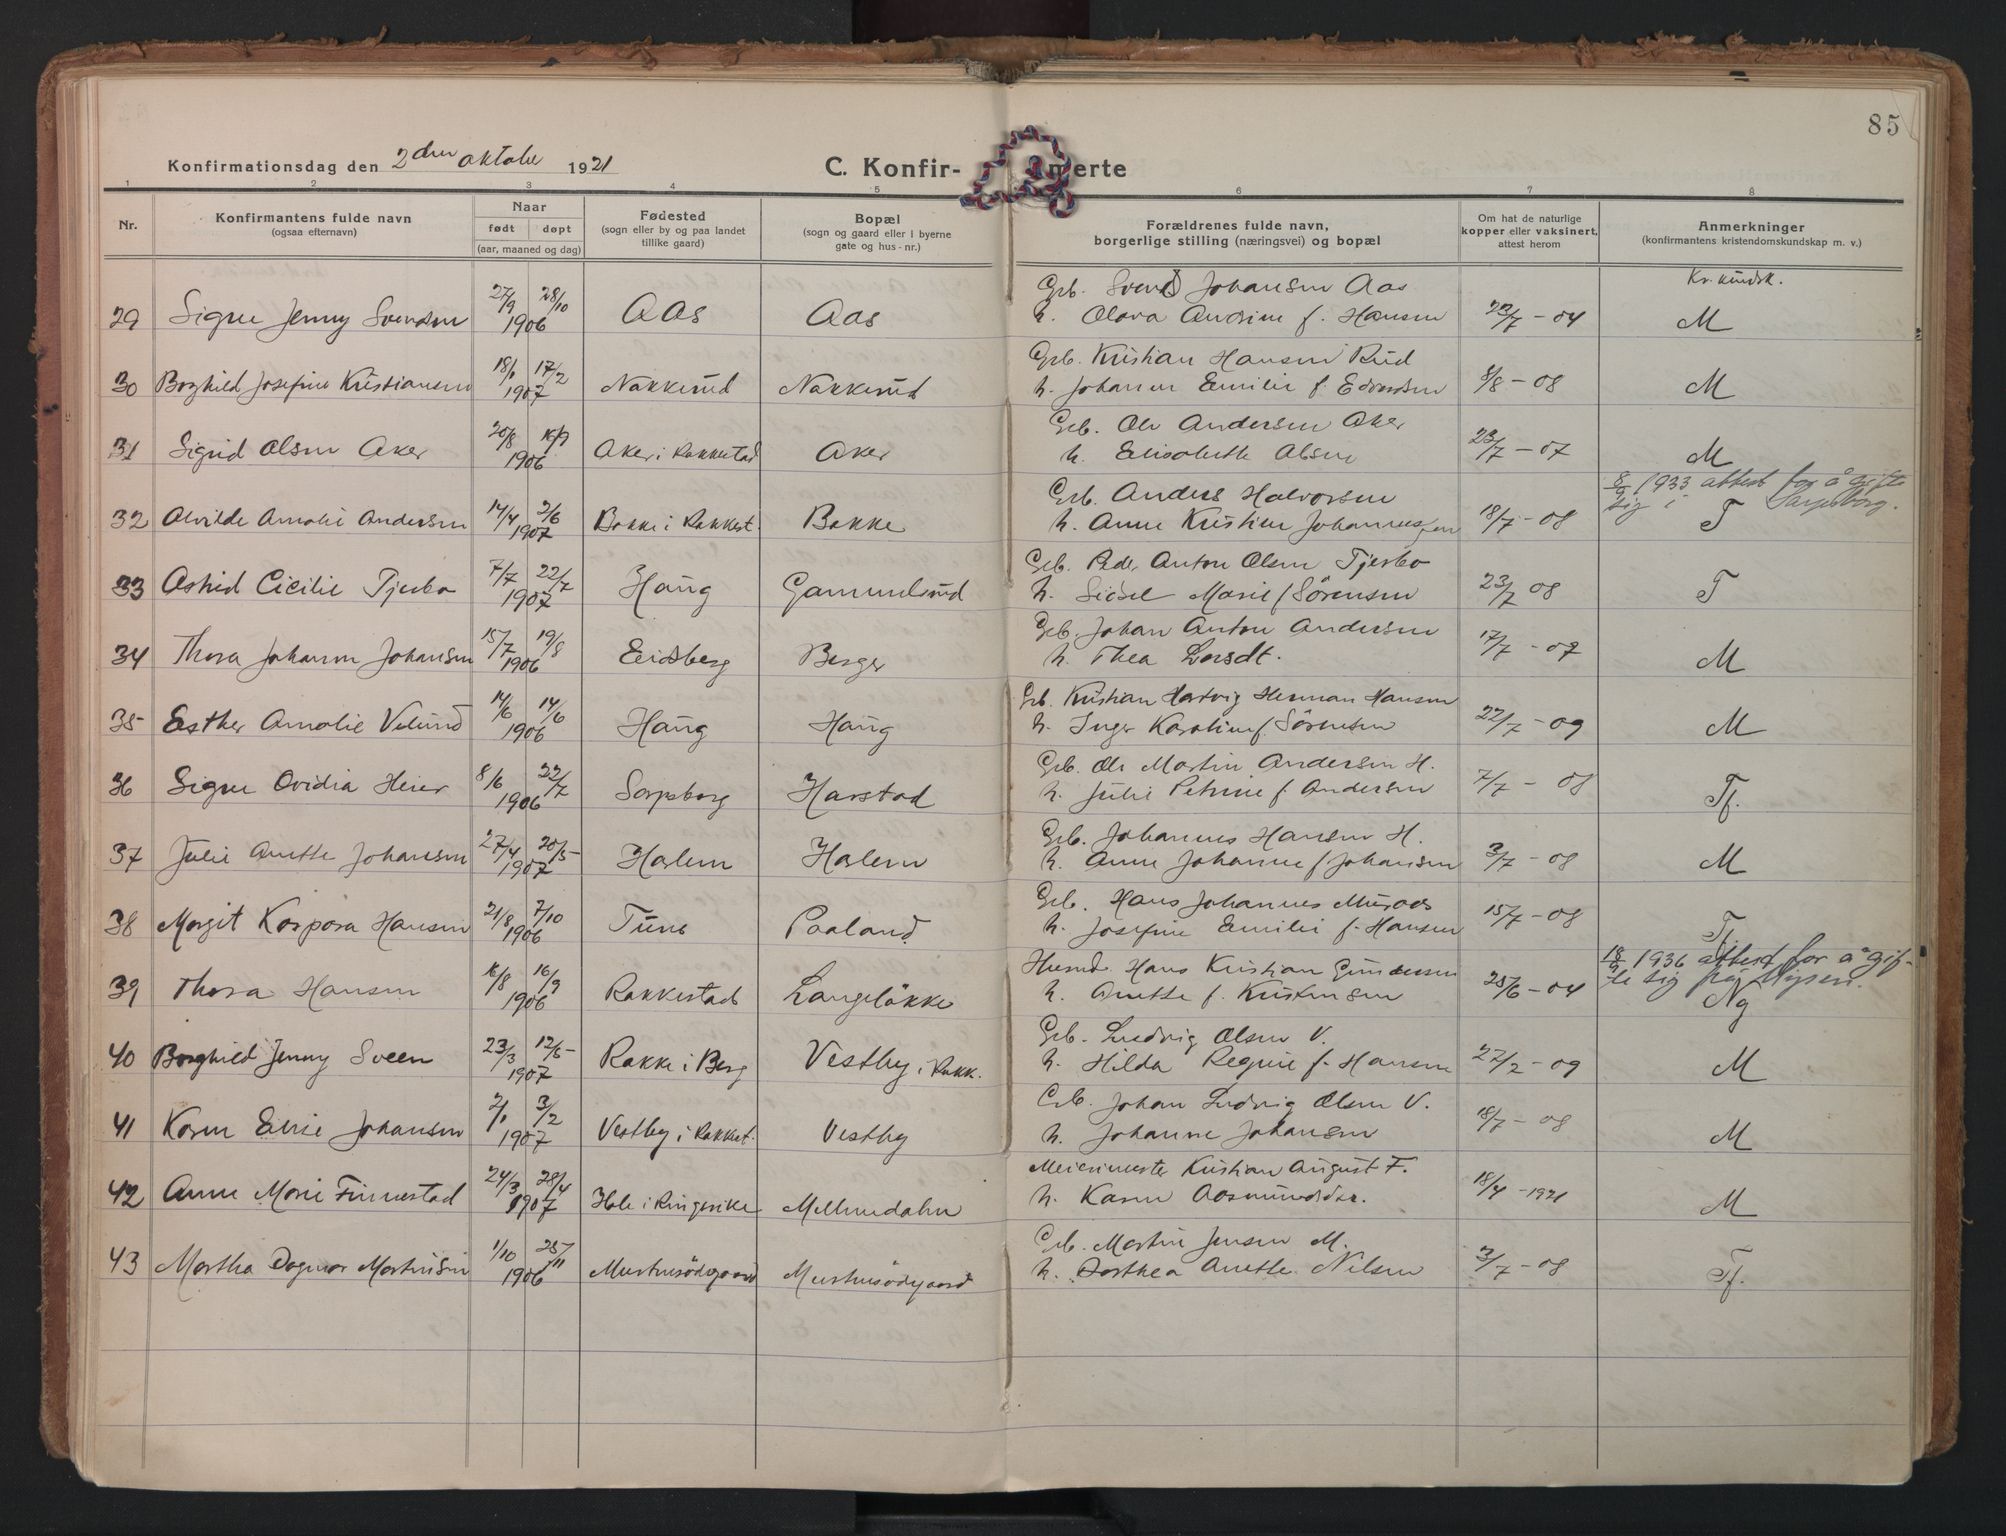 85
Konfirmationsdag den 2den oktober 1921
C. Konfir- merte
1 2 3 4 5 6 7 8
Nr.
Konfirmantens fulde navn
(ogsaa efternavn)
Naar
født døpt
(aar, maaned og dag)
Fødested
(sogn eller by og paa landet
tillike gaard)
Bopæl
(sogn og gaard eller i byerne
gate og hus-nr.)
Forældrenes fulde navn,
borgerlige stilling (næringsvei) og bopæl
Om hat de naturlige
kopper eller vaksinert,
attest herom
Anmerkninger
(konfirmantens kristendomskundskap m. v.)
Kr. kundsk.
Grb. Svend Johansen Aas
29 Signe Jenny Svendsen 27/9 28/10 1906 Aas Aas h. Olava Andrine f. Hansen 22/7 - 04 M
Grb. Kristian Hansen Rud
30 Borghild Josefine Kristiansen 18/1 17/2 1907 Nakkerud Nakkerud h. Johanne Emilie f. 8/8 - 08 M
Grb. Ole Andersen Aker
31 Sigrid Olsen Aker 20/8 16/9 1906 Aker i Rakkestad Aker h. Elisabeth Olsen 23/7 - 07 M
8/9 1933 attest for å gifte
sig i Sarpsborg.
Grb. Anders Halvorsen
32 Alvilde Amalie Andersen 14/4 2/6 1907 Bakke i Rakkest. Bakke h. Anne Kristine Johannessen 18/7 - 08 T
Grb. Peder Anton Olsen Tjerbo
33 Astrid Cicilie Tjerbo 7/7 22/7 1907 Haug Gammelsrud h. Sidsel Marie f Sörensen 23/7 08 T
Grb. Johan Anton Andersen
34 Thora Johanne Johansen 15/7 19/8 1906 Eidsberg Berger h. Thea Larsdt. 17/7 - 07 M
Grb. Kristian Hartvig Herman Hansen
35 Esther Amalie Velund 14/6 14/6 1906 Haug Haug h. Inger Karoline f. Sörensen 22/7 - 09 M
Grb. Ole Martin Andersen H.
36 Signe Ovidia Heier 8/6 22/7 1906 Sarpsborg Harstad h. Julie Petrine f Andersen 7/7 - 08 Tf.
Grb. Johannes Hansen H.
37 Julie Anette Johansen 27/4 20/5 1907 Harlem Harlem h. Anne Johanne f Johansen 3/7 - 08 M
Grb. Hans Johannes
38 Margit Korpora Hansen 21/8 7/10 1906 Tune Paaland h. Josefine Emilie f. Hansen 15/7 - 08 Tf.
18/9 1936 attest for å gif-
te sig på Mysen.
Husmd. Hans Kristian Gundersen
39 Thora Hansen 16/8 16/9 1906 Rakkestad Langeløkke h. Anette f. Kristensen 25/6 - 04 Ng
Grb. Ludvig Olsen V.
40 Borghild Jenny Sveen 23/3 12/5 1907 Rakke i Berg Vestby i Rakk. h. Hilda Regine f. Hansen 27/2 - 09 M
Grb. Johan Ludvig Olsen V.
41 Karen Elise Johansen 2/1 3/2 1907 Vestby i Rakkest. Vestby h. Johanne Johansen 18/7 - 08 M
Meierimester Kristian August F.
42 Anne Marie Finnestad 24/3 28/4 1907 Hole i Ringerike h. Karen 18/4 - 1921 M
Grb. Martin Jensen M.
43 Martha Dagmar Martinsen 1/10 25/11 1906 h. Dorthea Anette Nilsen 3/7 - 08 Tf.